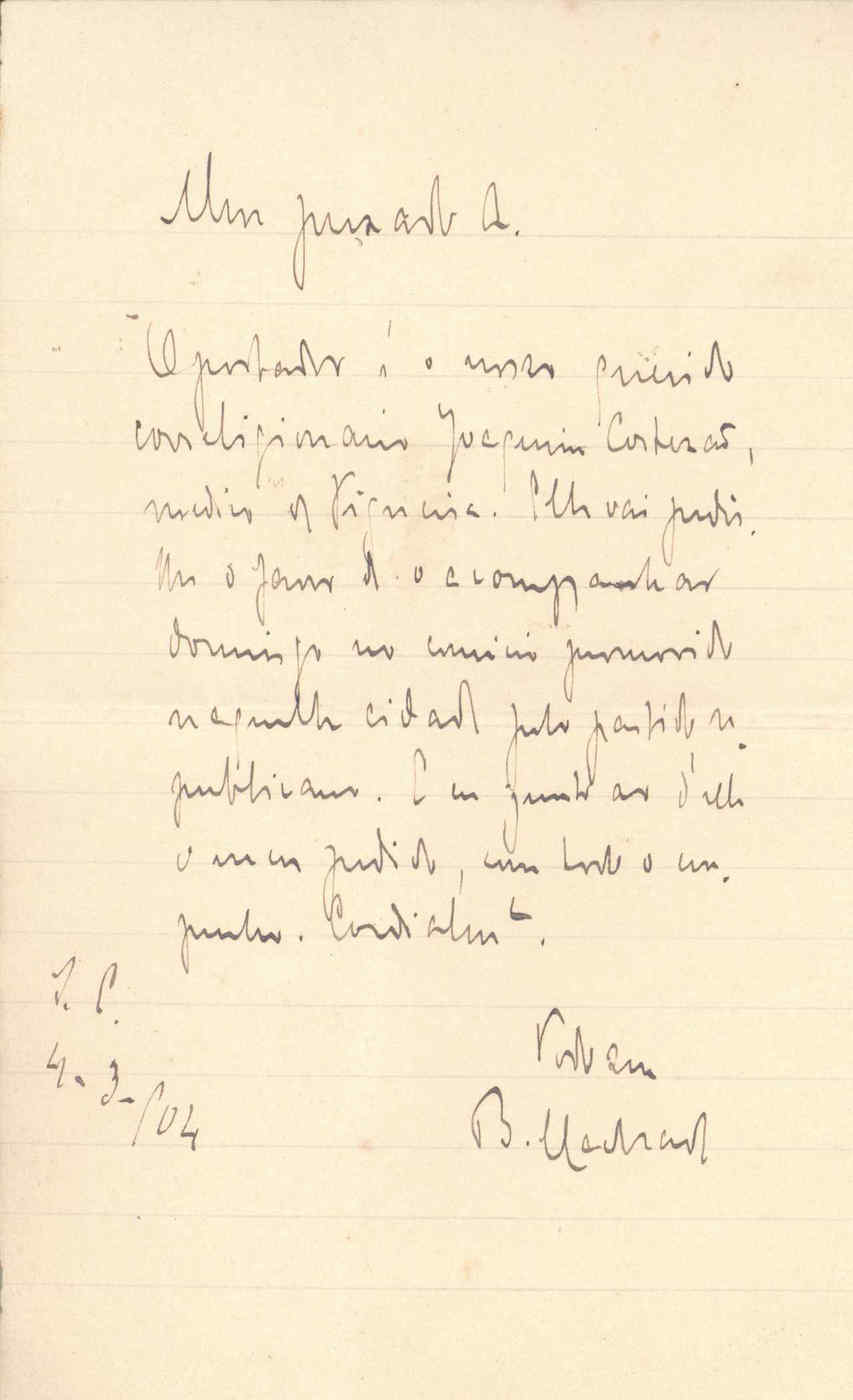 Meu presado A.
O portador é o nosso querido
correligionario Joaquim Cortezão,
medico n Figueira. Elle vai pedir-
lhe o favor d o accompanhar
domingo no comicio promovido
naquella cidade pelo partido re-
publicano. E eu junto ao d'elle
o meu pedido, com todo o em-
penho. Cordialmte.
S. C.
4-3-904
Todo seu
B. Machado